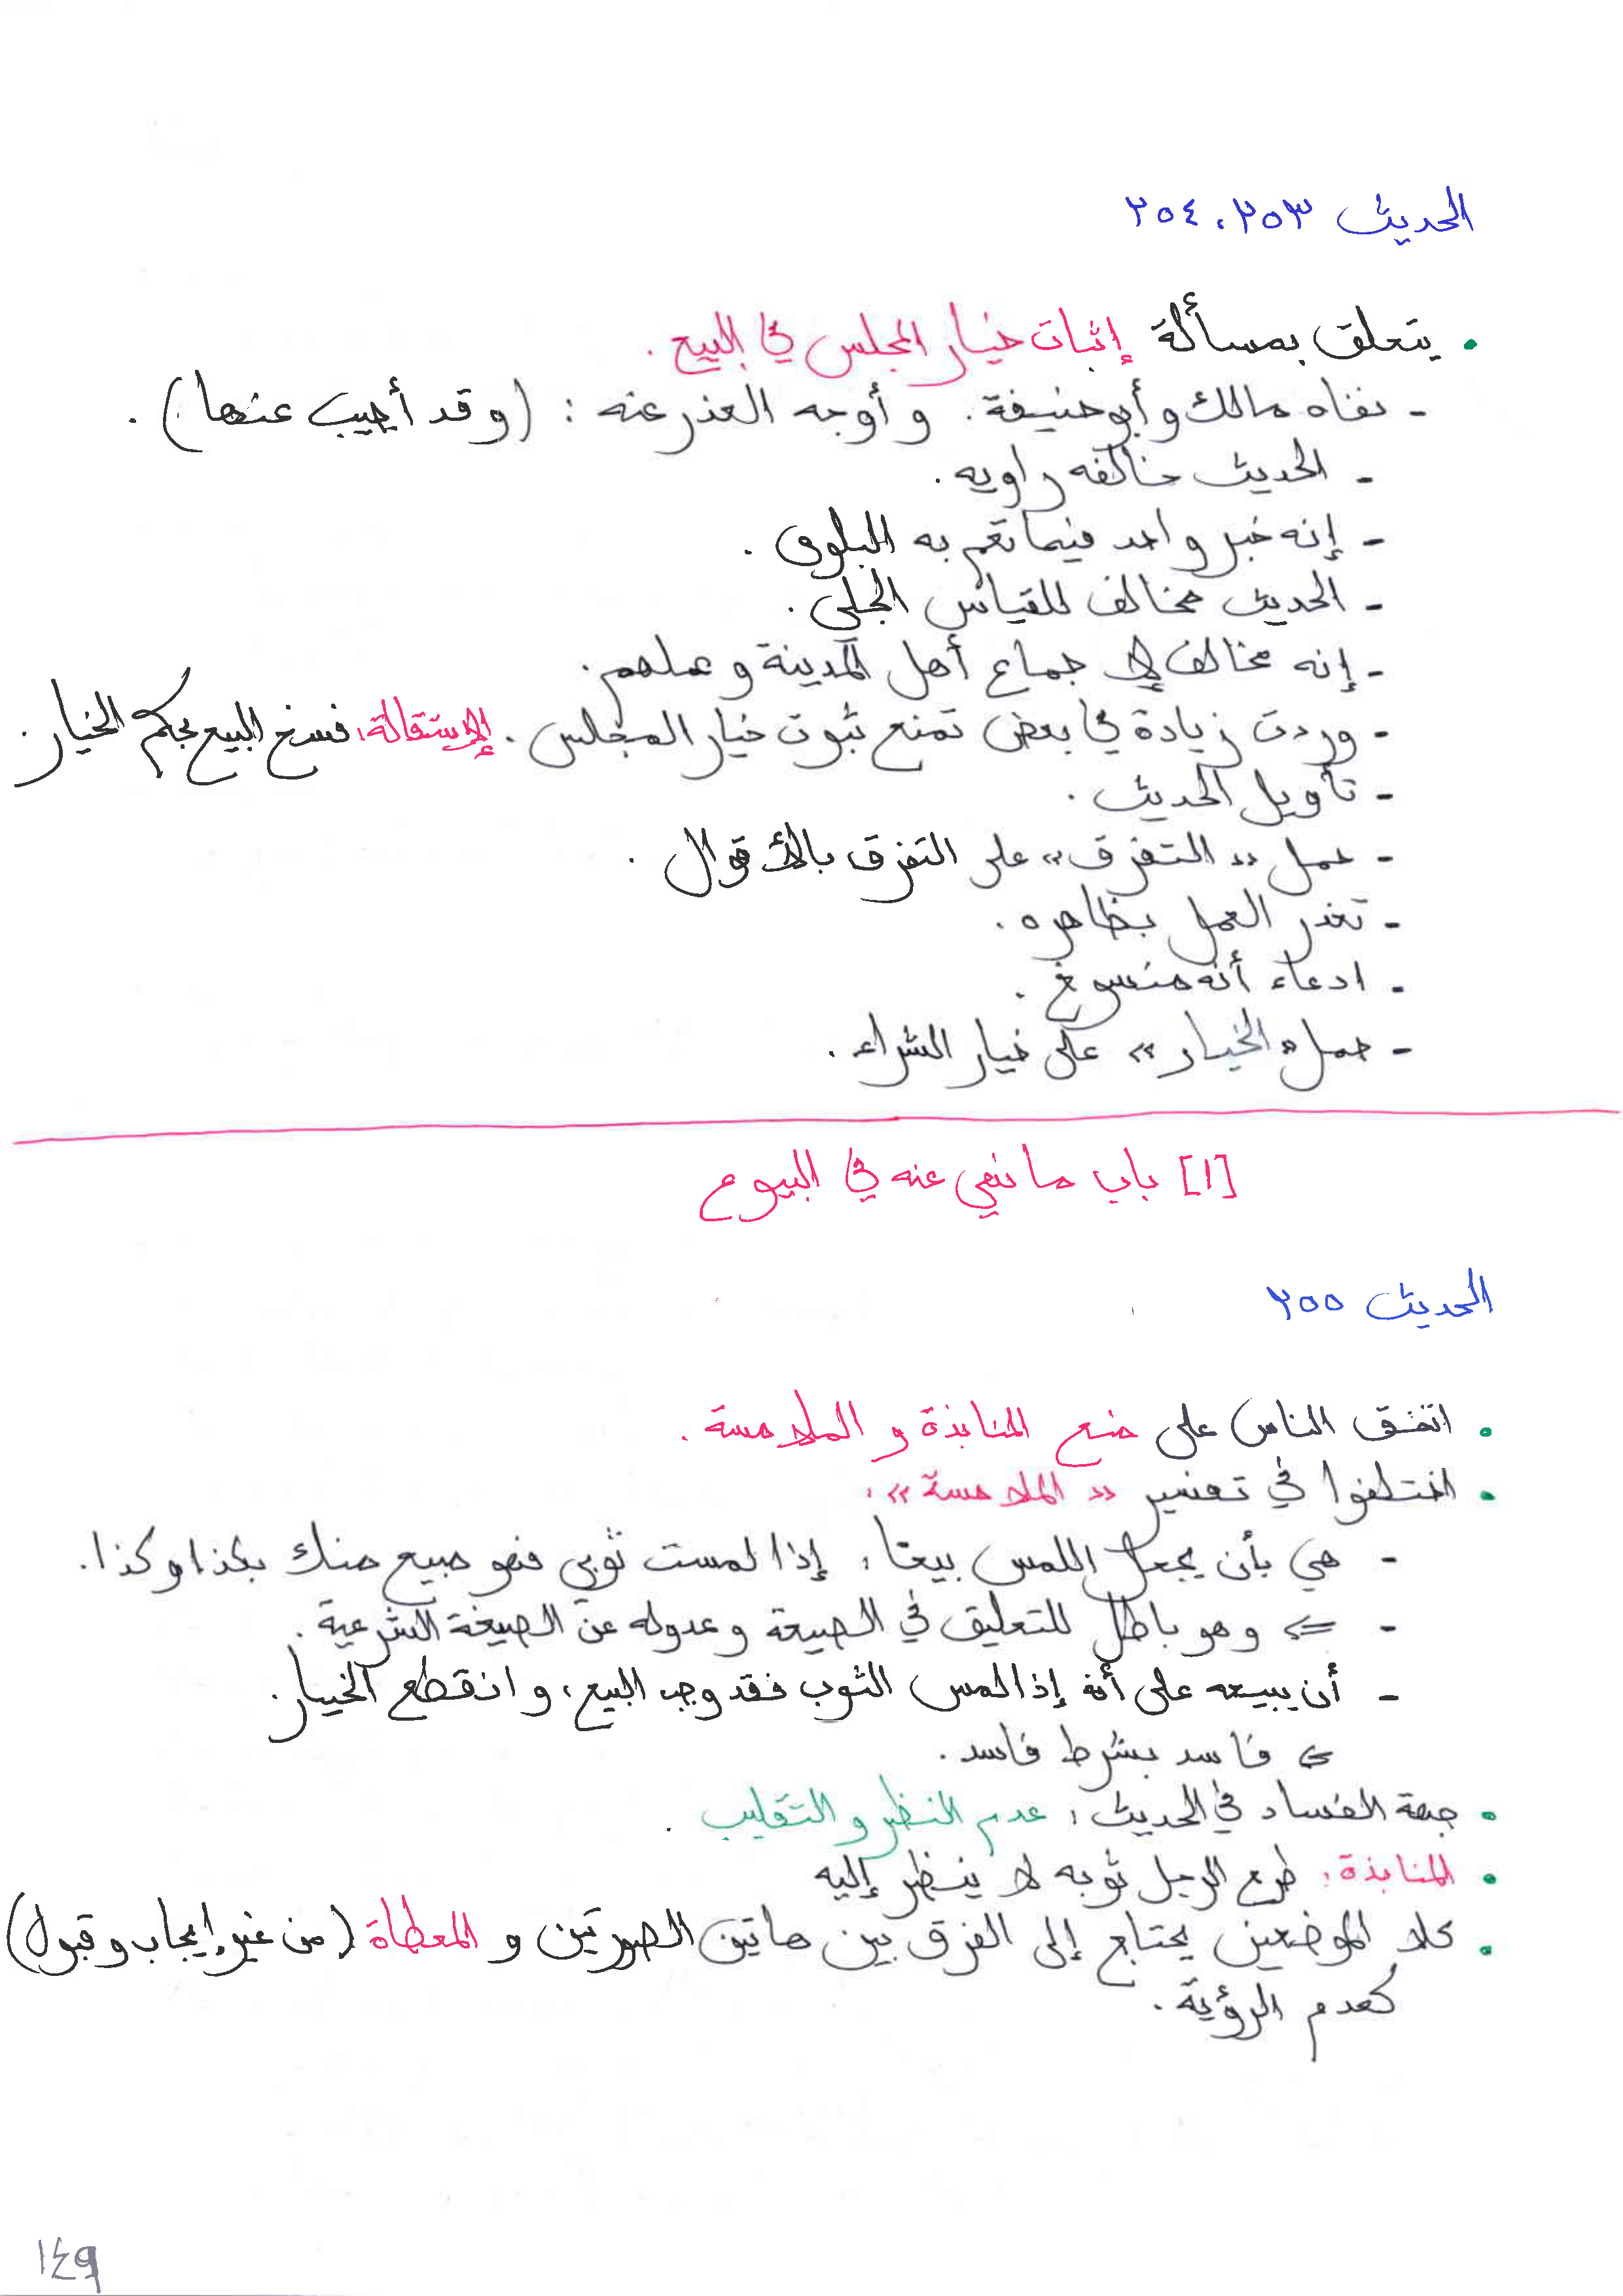 الحديث ٢٥٣، ٢٥٤
• يتعلق بمسألة إثبات خيار المجلس في البيع.
- نفاه مالك وأبو حنيفة. وأوجه العذر عنه : (وقد أجيب عنها).
- الحديث خالفه راويه.
- إنه خبر واحد فيما تعم به البلوى.
- الحديث مخالف للقياس الجلي.
- إنه مخالف لإجماع أهل المدينة وعملهم.
- وردت زيادة في بعض تمنع ثبوت خيار المجلس. الإستقالة: فسخ البيع بحكم الخيار.
- تأويل الحديث.
- حمل «التفرق» على التفرق بالأقوال.
- تعذر العمل بظاهره.
- ادعاء أنه منسوخ.
- حمل «الخيار» على خيار الشراء.
[١] باب ما نهي عنه في البيوع
الحديث ٢٥٥
• اتفق الناس على منع المنابذة و الملامسة.
• اختلفوا في تفسير «الملامسة»:
- هي بأن يجعل اللمس بيعا: إذا لمست ثوبي فهو مبيع منك بكذا وكذا.
- => وهو باطل للتعليق في الصيغة وعدوله عن الصيغة الشرعية.
- أن يبيعه على أنه إذا لمس الثوب فقد وجب البيع، وانقطع الخيار.
=> فاسد بشرط فاسد.
• جهة الفساد في الحديث: عدم النظر و التقليب.
• المنابذة: طرح الرجل ثوبه لا ينظر إليه
• كلا الموضعين يحتاج إلى الفرق بين هاتين الصورتين و المعطاة (من غير إيجاب وقبول)
كعدم الرؤية.
١٤٩